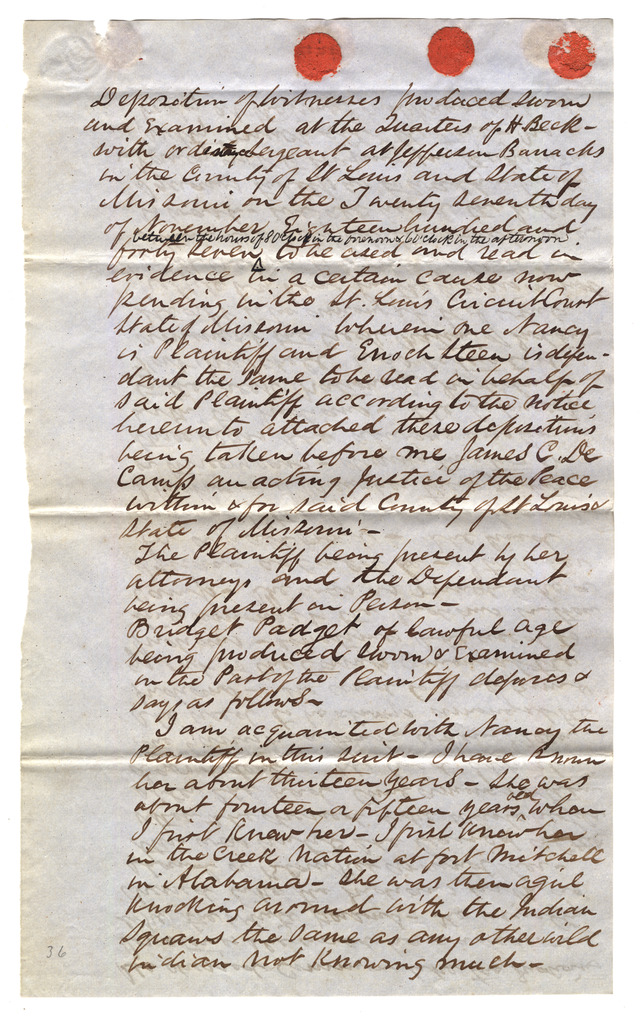 Deposition of Witnesses produced sworn
and Examined at the Quarters of H Beck-
with ord Sergeant at Jefferson Barracks
in the County of St Louis and State of
Missouri on the Twenty seventh day
of November Eighteen hundred and
between the hours of 8 Oclock in the forenoon & 6 Oclock in the afternoon
forty seven to be used and read in
evidence in a certain cause now
pending in the St. Louis Circuit Court
State of Missouri Wherein one Nancy
is Plaintiff and Enoch Steen is defen-
dant the same to be read in behalf of
said Plaintiff according to the notice
hereunto attached these depositions
being taken before me James C. De
Camp an acting Justice of the Peace
within & for said County of St Louis &
State of Missouri -
The Plaintiff being present by her
attorneys and the Defendant
being present in Person -
Bridget Padget of lawful age
being produced sworn & Examined
on the Part of the Plaintiff deposes &
says as follows -
I am acquainted with Nancy the
Plaintiff in this suit - I have known
her about thirteen years - she was
about fourteen or fifteen years old when
I first Knew her - I first Knew her
in the Creek Nation at fort Mitchell
in Alabama - she was then a girl
Knocking around with the Indian
Squaws the same as any other wild
indian not Knowing much -
36